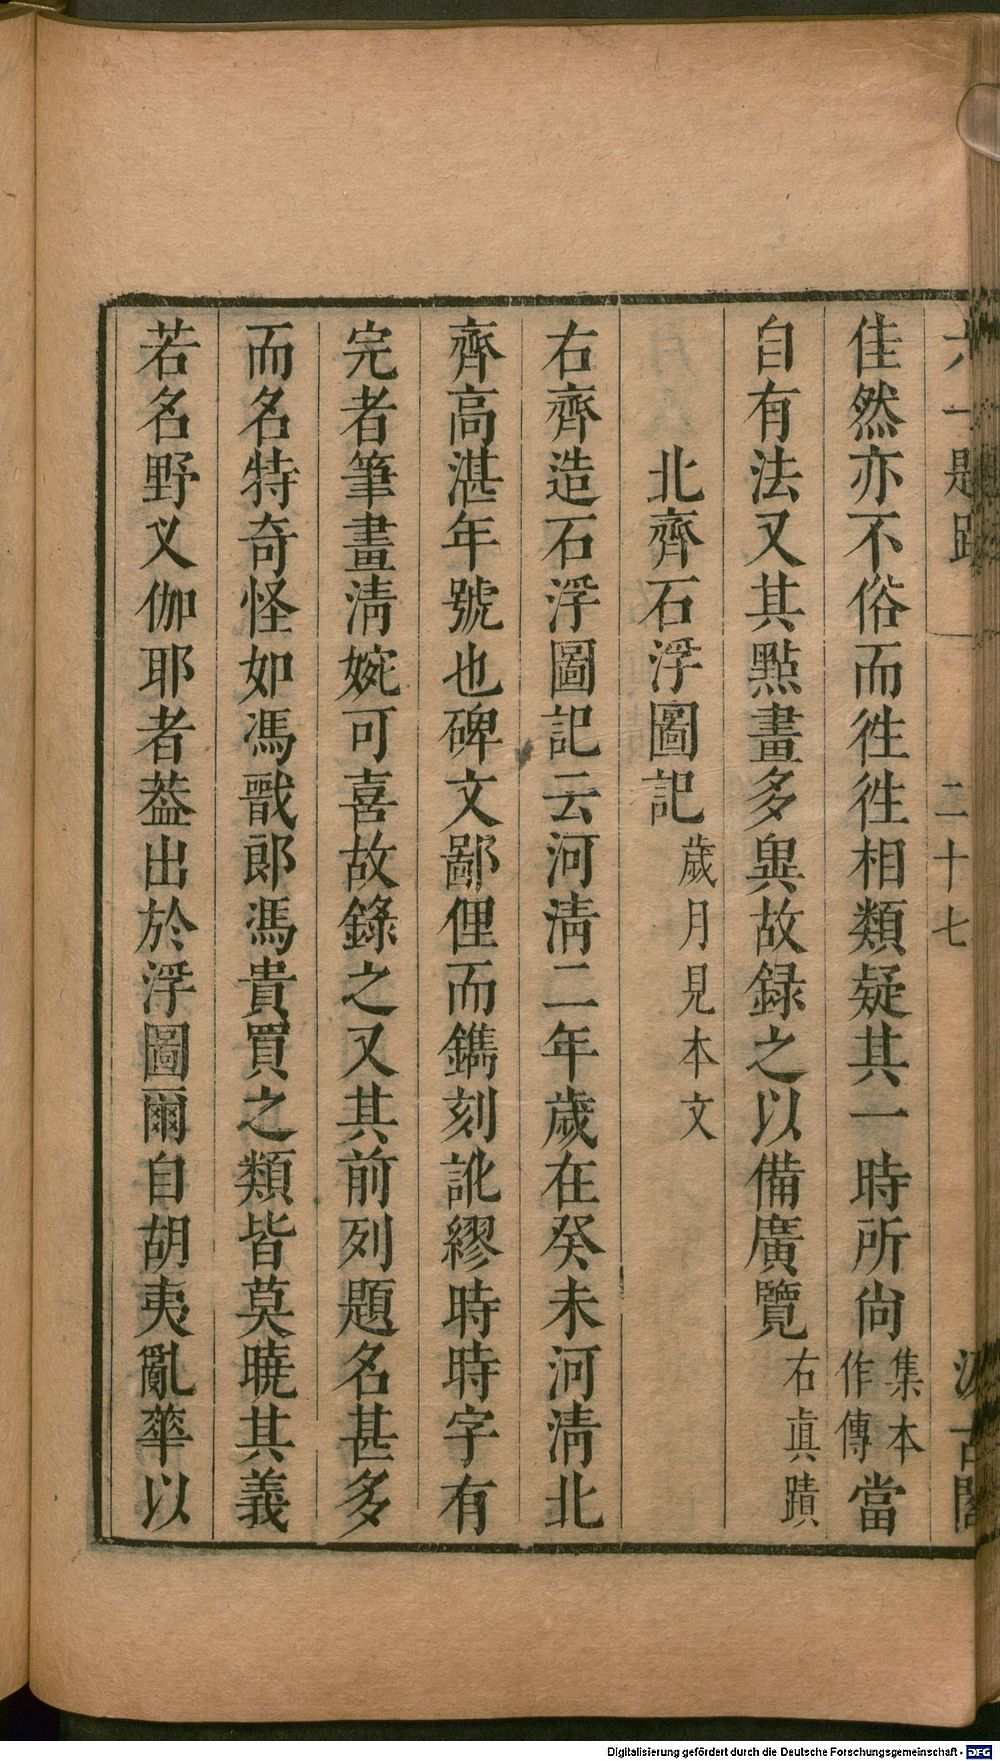 六一題跋 二十七 汲古閣
佳然亦不俗而徃徃相類疑其一時所尚集本作傳當
自有法又其點畫多異故録之以備廣覽右眞蹟
北齊石浮圖記歲月見本文
右齊造石浮圖記云河淸二年歲在癸未河淸北
齊高湛年號也碑文鄙俚而鐫刻訛繆時時字有
完者筆畫淸婉可喜故錄之又其前列題名甚多
而名特奇怪如馮戬郎馮貴買之類皆莫曉其義
若名野义伽耶者葢出於浮圖爾自胡夷亂華以
Digitalisierung gefördert durch die Deutsche Forschungsgemeinschaft - DFG